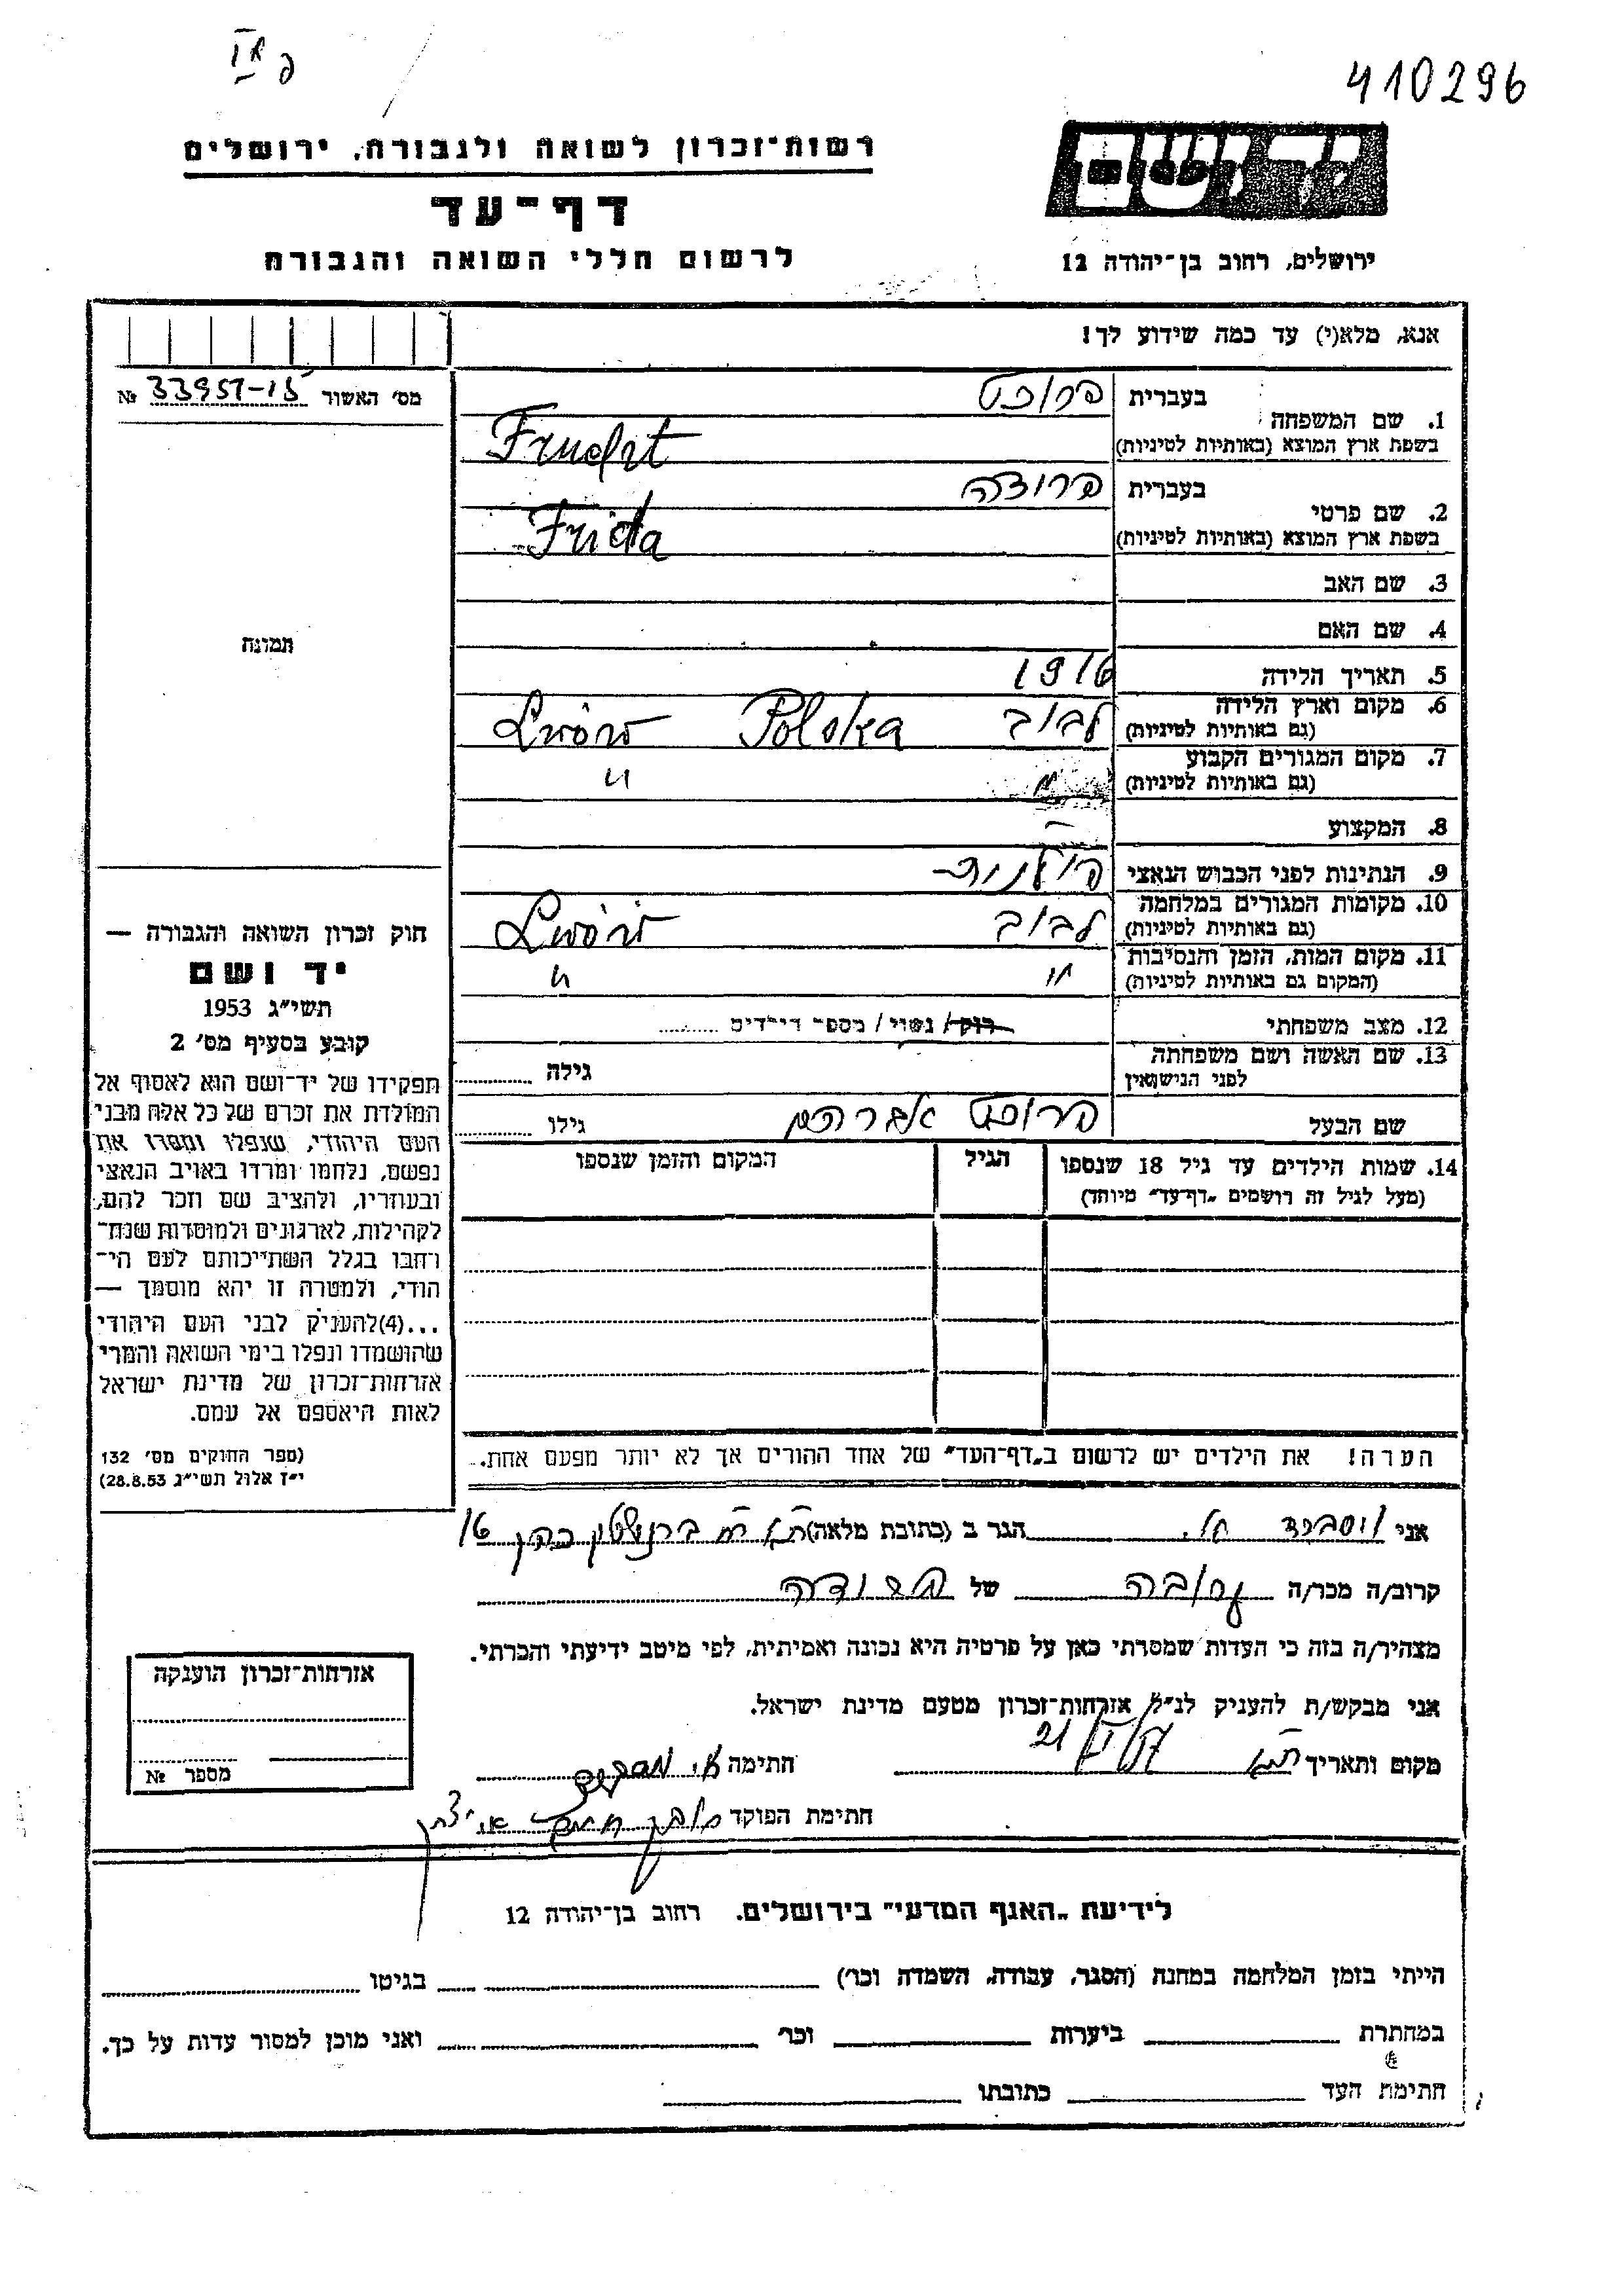 410296
רשות־זכרון לשואה ולגבורה, ירושלים
יד ושם
דף־עד
לרשום חללי השואה והגבורה
ירושלים, רחוב בן־יהודה 12
אנא, מלא(י) עד כמה שידוע לך!
מס׳ האשור № 33951-15
1. שם המשפחה בעברית פרוכט
בשפת ארץ המוצא (באותיות לטיניות) Frucht
2. שם פרטי בעברית
בשפת ארץ המוצא (באותיות לטיניות) Frida
3. שם האב
4. שם האם
תמונה
5. תאריך הלידה 1916
6. מקום וארץ הלידה (גם באותיות לטיניות) לבוב Polska Lwów
7. מקום המגורים הקבוע (גם באותיות לטיניות) " "
8. המקצוע
9. הנתינות לפני הכבוש הנאצי
10. מקומות המגורים במלחמה (גם באותיות לטיניות) לבוב Lwów
11. מקום המות, הזמן והנסיבות (המקום גם באותיות לטיניות) " "
12. מצב משפחתי רוק / נשוי / מספר הילדים
13. שם האשה ושם משפחתה לפני הנישואין גילה
שם הבעל פרוכט אברהם גילו
14. שמות הילדים עד גיל 18 שנספו הגיל המקום והזמן שנספו
(מעל לגיל זה רושמים „דף־עד" מיוחד)
הערה! את הילדים יש לרשום ב„דף־העד" של אחד ההורים אך לא יותר מפעם אחת.
חוק זכרון השואה והגבורה —
יד ושם
תשי״ג 1953
קובע בסעיף מס׳ 2
תפקידו של יד־ושם הוא לאסוף אל
המולדת את זכרם של כל אלה מבני
העם היהודי, שנפלו ומסרו את
נפשם, נלחמו ומרדו באויב הנאצי
ובעוזריו, ולהציב שם וזכר להם,
לקהילות, לארגונים ולמוסדות שנח־
רחבו בגלל השתייכותם לעם הי־
הודי, ולמטרה זו יהא מוסמך —
...(4)להעניק לבני העם היהודי
שהושמדו ונפלו בימי השואה והמרי
אזרחות־זכרון של מדינת ישראל
לאות היאספם אל עמם.
(ספר החוקים מס׳ 132
י״ז אלול תשי״ג 28.8.53)
אני הגר ב (כתובת מלאה) כהן 16
קרוב/ה מכר/ה קרובה של פרודה
מצהיר/ה בזה כי העדות שמסרתי כאן על פרטיה היא נכונה ואמיתית, לפי מיטב ידיעתי והכרתי.
אני מבקש/ת להעניק לנ״ל אזרחות־זכרון מטעם מדינת ישראל.
מקום ותאריך חתימה
חתימת הפוקד
אזרחות־זכרון הוענקה
מספר №
לידיעת „האגף המדעי" בירושלים. רחוב בן־יהודה 12
הייתי בזמן המלחמה במחנה (הסגר, עבודה, השמדה וכר׳) בגיטו
במחתרת ביערות וכר׳ ואני מוכן למסור עדות על כך.
חתימת העד כתובתו